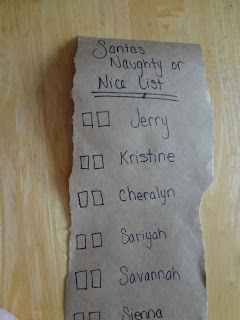 Santas
Naughty or
Nice List
Jerry
Kristine
Cheralyn
Sariyah
Savannah
Sienna